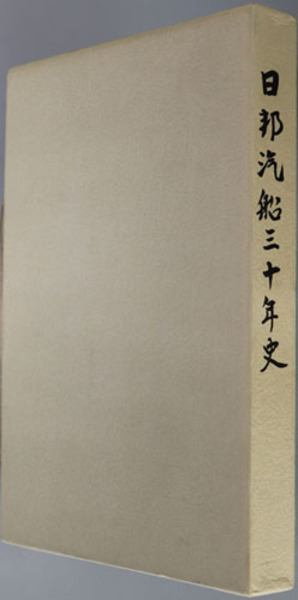 日邦汽船三十年史